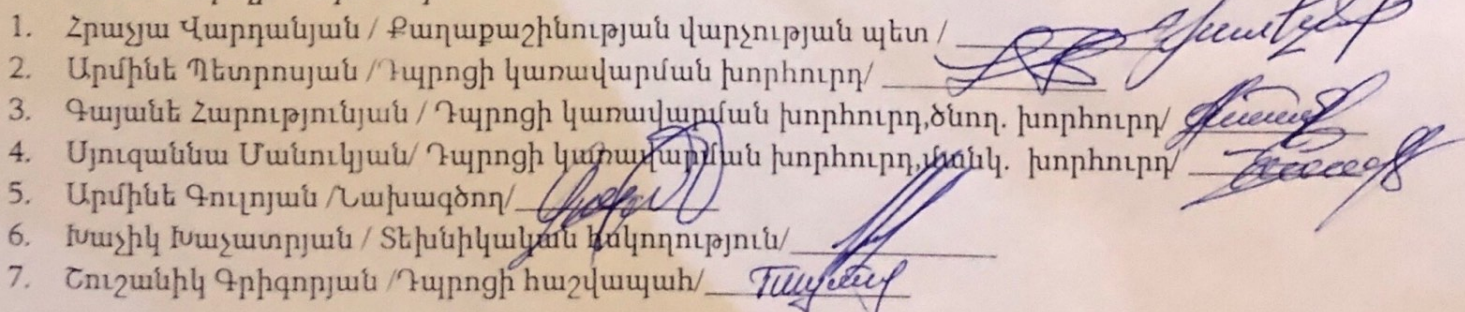 1. Հրաչյա Վարդանյան / Քաղաքաշինության վարչության պետ /
2. Արմինե Պետրոսյան /Դպրոցի կառավարման խորհուրդ/
3. Գայանե Հարությունյան / Դպրոցի կառավարման խորհուրդ,ծնող. խորհուրդ/
4. Սյուզաննա Մանուկյան/ Դպրոցի կառավարման խորհուրդ,մանկ. խորհուրդ/
5. Արմինե Գուլոյան /Նախագծող/
6. Խաչիկ Խաչատրյան / Տեխնիկական հսկողություն/
7. Շուշանիկ Գրիգորյան /Դպրոցի հաշվապահ/